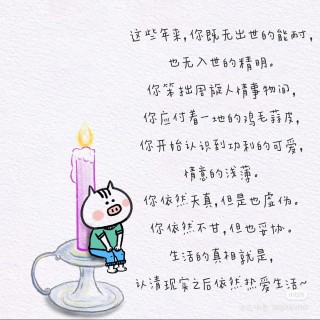 这些年来,你既无出世的能耐,
也无入世的精明。
你笨拙周旋人情事物间,
你应付着一地的鸡毛蒜皮,
你开始认识到功利的可爱,
情意的浅薄。
你依然天真,但是也虚伪。
你依然不甘,但也妥协。
生活的真相就是,
认清现实之后依然热爱生活~